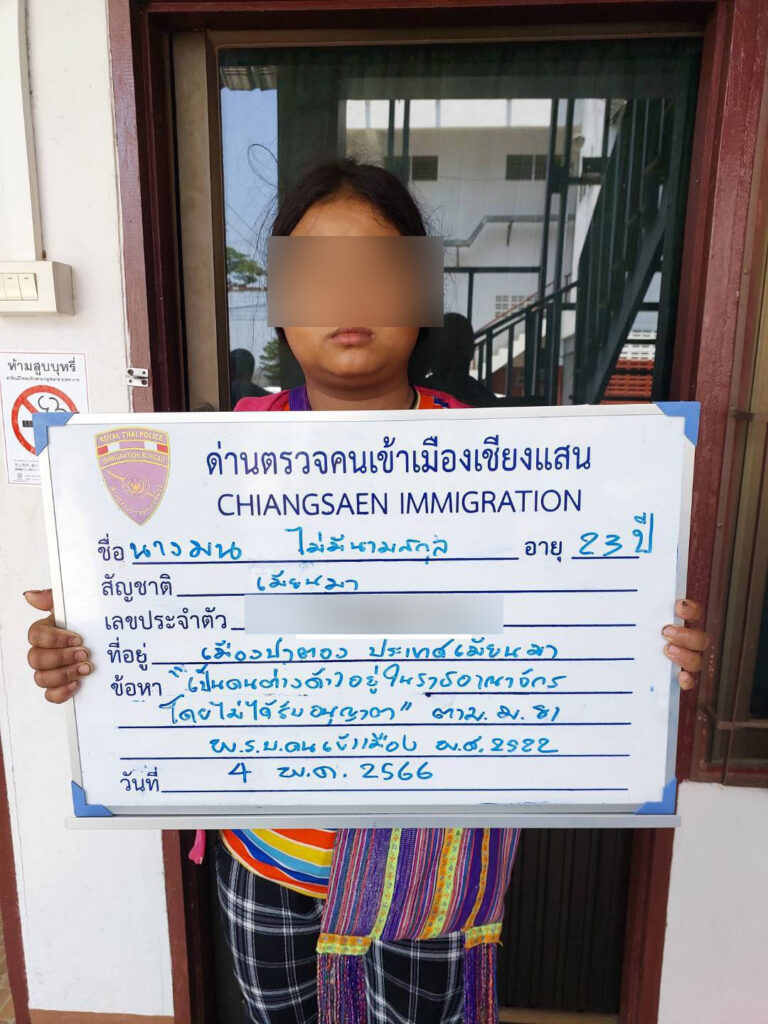 ห้ามสูบบุหรี่
ROYAL THAI POLICE
IMMIGRATION BUREAU
ด่านตรวจคนเข้าเมืองเชียงแสน
CHIANGSAEN IMMIGRATION
ชื่อ นางมน ไม่มีนามสกุล อายุ 23 ปี
สัญชาติ เมียนมา
เลขประจำตัว
ที่อยู่ เมืองป่าตอง ประเทศเมียนมา
ข้อหา "เป็นคนต่างด้าวอยู่ในราชอาณาจักร
โดยไม่ได้รับอนุญาต" ตาม ม.81
พ.ร.บ.คนเข้าเมือง พ.ศ.2522
วันที่ 4 พ.ค. 2566